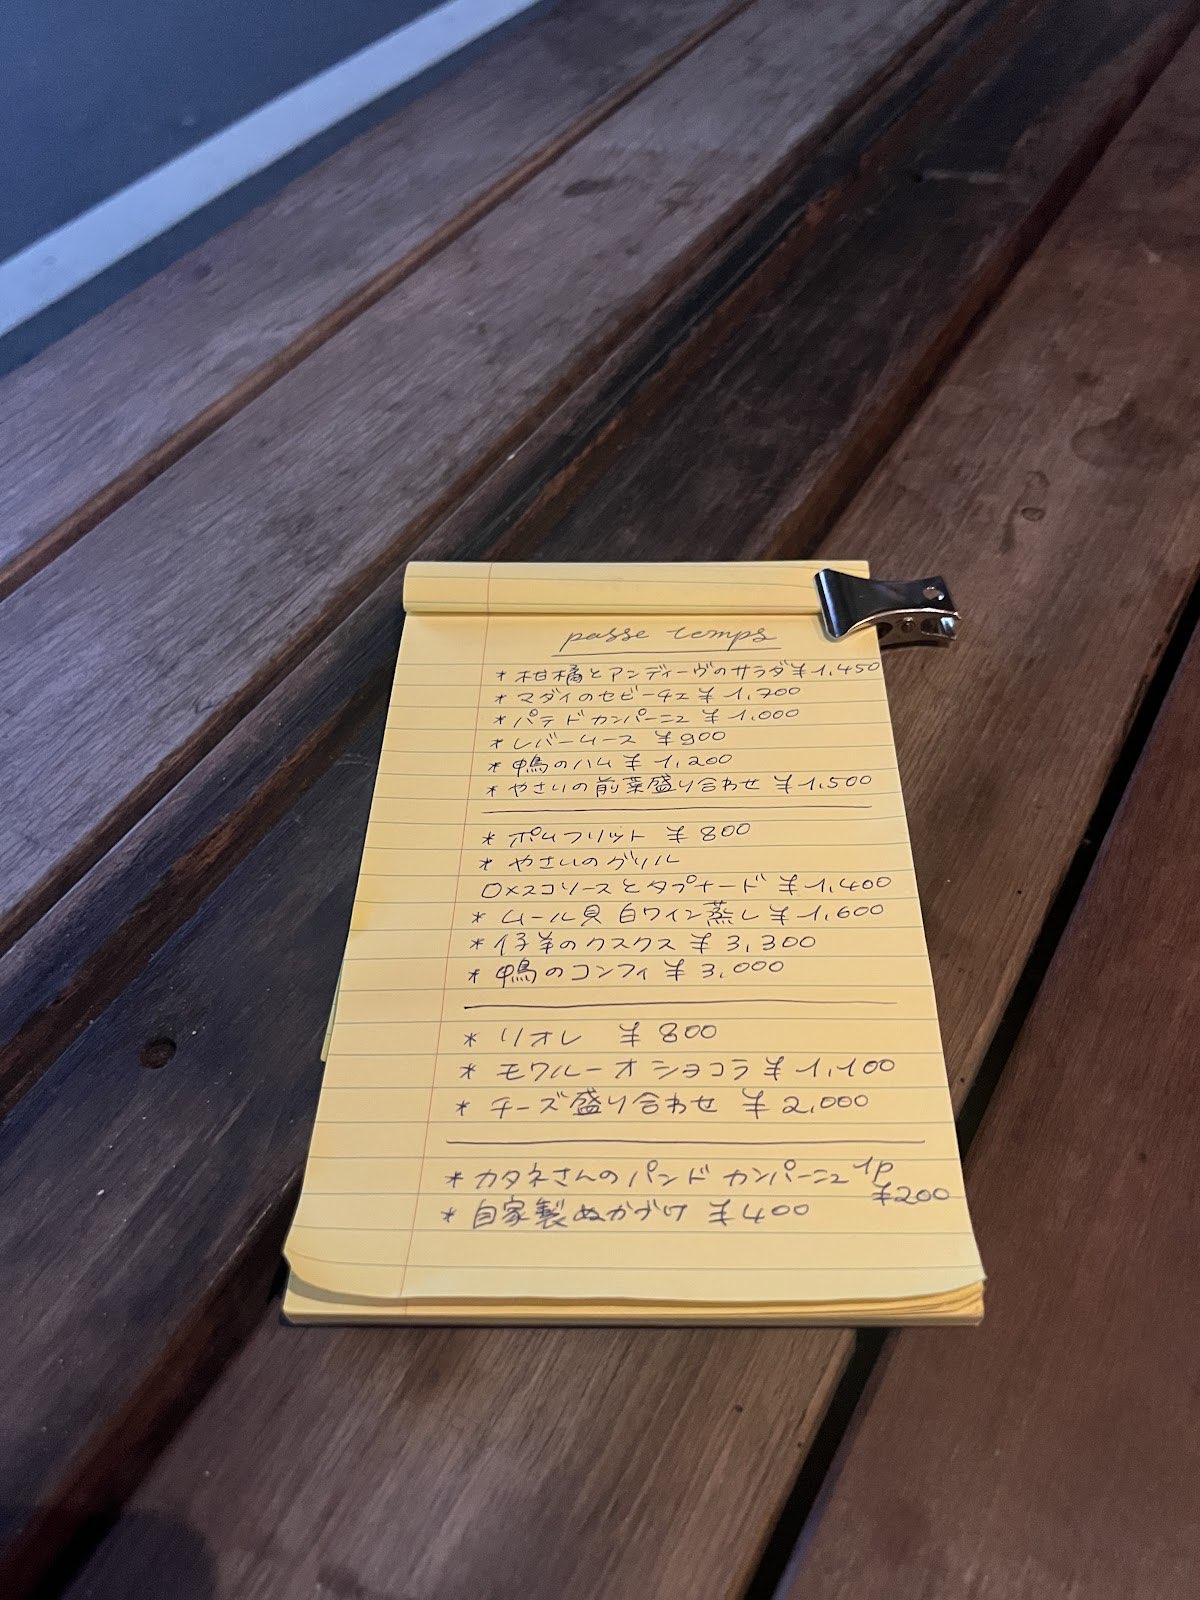 passe temps
* 柑橘とアンディーヴのサラダ ¥1,450
* マダイのセビーチェ ¥1,700
* パテドカンパーニュ ¥1,000
* レバームース ¥900
* 鴨のハム ¥1,200
* やさいの前菜盛り合わせ ¥1,500
* ポムフリット ¥800
* やさいのグリル
ロメスコソースとタプナード ¥1,400
* ムール貝 白ワイン蒸し ¥1,600
* 仔羊のクスクス ¥3,300
* 鴨のコンフィ ¥3,000
* リオレ ¥800
* モワルーオショコラ ¥1,100
* チーズ盛り合わせ ¥2,000
* カタネさんのパンドカンパーニュ 1p
¥200
* 自家製ぬかづけ ¥400